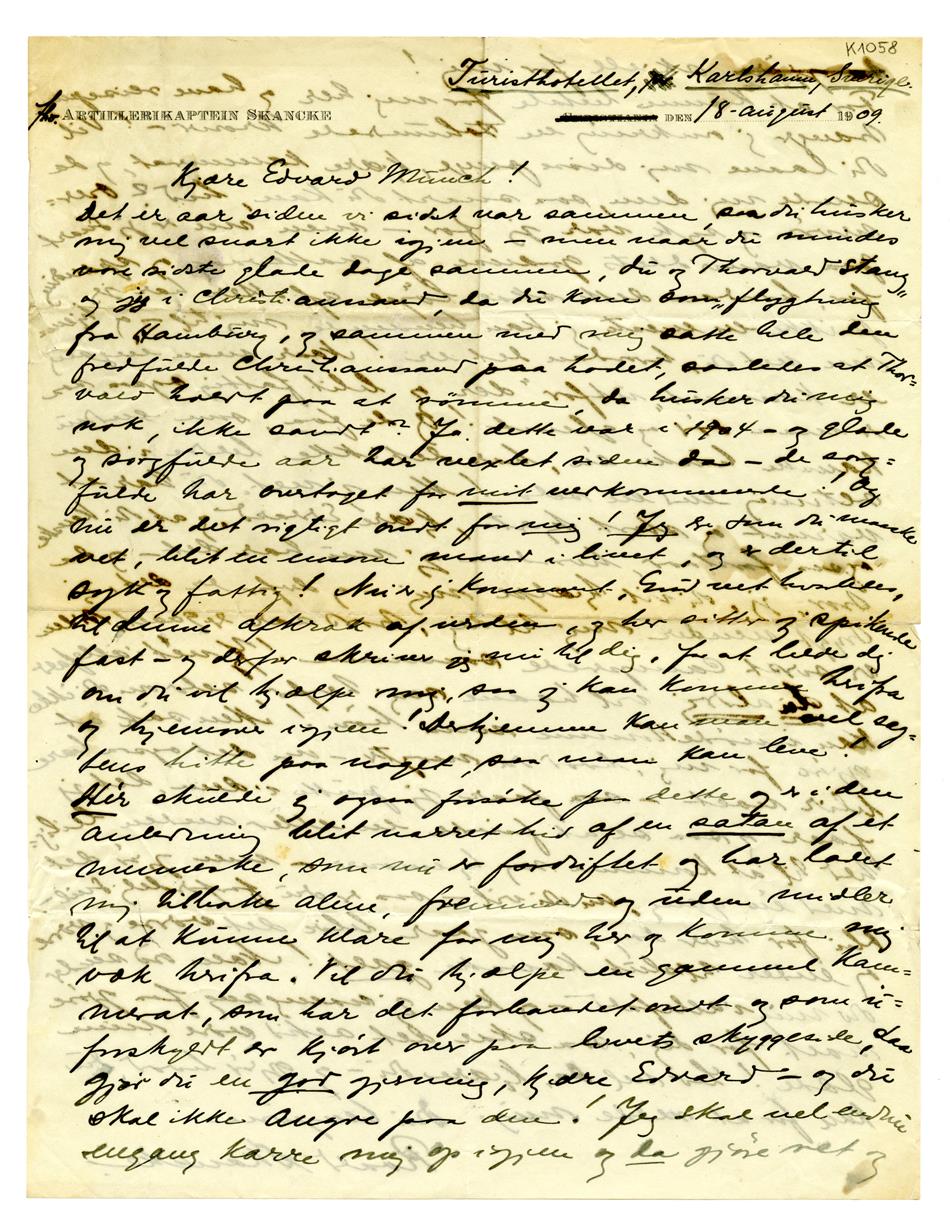 K1058
Turisthotellet, Karlshamn, Sverige.
Thv. ARTILLERIKAPTEIN SKANCKE DEN 18-august 1909.
Kjære Edvard Münch!
Det er aar siden vi sidst var sammen, saa du husker
mig vel snart ikke igjen – men naar du mindes
vore sidste glade dage sammen, du og Thorvald Stang
og jeg i Christianssand, da du kom som „flygtning"
fra Hamburg, og sammen med mig satte hele den
fredfulde Christianssand paa hodet, saaledes at Thor-
vald holdt paa at rømme, da husker du mig
nok, ikke sandt? Ja dette var i 1904 – og glade
og sorgfulde aar har vexlet siden da – de sorg=
fulde har overtaget for mit vedkommende! Og
nu er det rigtigt ondt for mig! Jeg er som du maaske
vet, blit en ensom mand i livet, og er dertil
syk og fattig! Nu er jeg kommet, Gud vet hvorledes,
til denne afkrok af verden, og her sitter jeg spikende
fast – og derfor skriver jeg nu til dig, for at bede dig
om du vil hjælpe mig, saa jeg kan komme herifra
og hjemover igjen! Derhjemme kan da vel sag-
tens hitte paa noget, saa man kan leve!
Her skulde jeg ogsaa forsøke paa dette og er i den
anledning blit narret hid af en satan af et
menneske, som nu er fordriftet og har ladet
mig tilbake alene, fremmed og uden midler
til at kunne klare for mig her og komme mig
væk herifra. Vil du hjælpe en gammel Kam=
merat, som har det forbandet ondt og som u=
forskyldt er kjørt over paa livets skyggeside, saa
gjør du en god gjerning, kjære Edvard – og du
skal ikke angre paa den! Jeg skal vel endnu
engang karre mig op igjen og da gjøre ret og